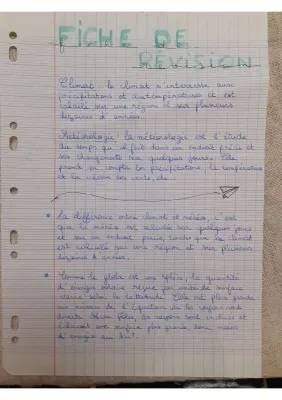 FICHE DE
RÉVISION
Climat : le climat s'intéresse aux
précipitations et températures et est
calculé sur une région et sur plusieurs
dizaines d'années.
Météorologie : la météorologie est l'étude
du temps qu'il fait dans un endroit précis et
ses changements sur quelques jours. Elle
prend en compte les précipitations, la température
et la vitesse du vent, etc..
La différence entre climat et météo, c'est
que la météo est calculée sur quelques jours
et sur un endroit précis, tandis que le climat
est calculé sur une région et sur plusieurs
dizaines d'années.
Comme le globe est une sphère, la quantité
d'énergie solaire reçue par unité de surface
varie selon la latitude. Elle est plus grande
au niveau de l'Équateur car les rayons sont
directs. Aux pôles, les rayons sont inclinés et
éclairent une surface plus grande donc moins
d'énergie au km².